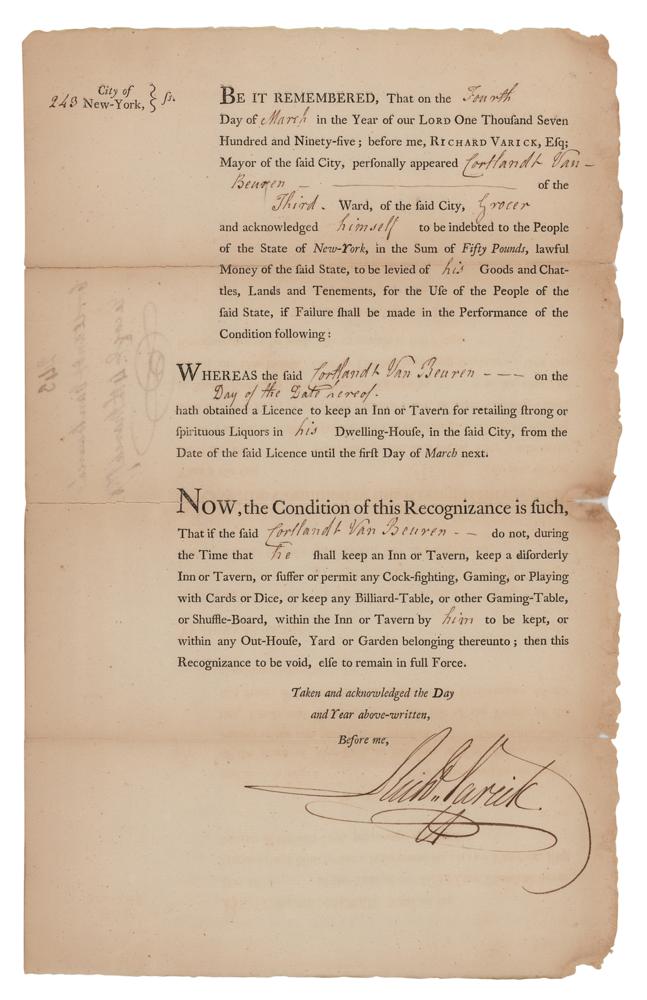 City of
243 New-York, } ſs.
BE IT REMEMBERED, That on the Fourth
Day of March in the Year of our LORD One Thouſand Seven
Hundred and Ninety-five; before me, RICHARD VARICK, Eſq;
Mayor of the ſaid City, perſonally appeared Cortlandt Van-
Beuren - of the
Third. Ward, of the ſaid City, Grocer
and acknowledged himself to be indebted to the People
of the State of New-York, in the Sum of Fifty Pounds, lawful
Money of the ſaid State, to be levied of his Goods and Chat-
tles, Lands and Tenements, for the Uſe of the People of the
ſaid State, if Failure ſhall be made in the Performance of the
Condition following:
WHEREAS the ſaid Cortlandt Van Beuren - - - on the
Day of the Date hereof.
hath obtained a Licence to keep an Inn or Tavern for retailing ſtrong or
ſpirituous Liquors in his Dwelling-Houſe, in the ſaid City, from the
Date of the ſaid Licence until the firſt Day of March next.
NOW, the Condition of this Recognizance is ſuch,
That if the ſaid Cortlandt Van Beuren - - do not, during
the Time that he ſhall keep an Inn or Tavern, keep a diſorderly
Inn or Tavern, or ſuffer or permit any Cock-fighting, Gaming, or Playing
with Cards or Dice, or keep any Billiard-Table, or other Gaming-Table,
or Shuffle-Board, within the Inn or Tavern by him to be kept, or
within any Out-Houſe, Yard or Garden belonging thereunto; then this
Recognizance to be void, elſe to remain in full Force.
Taken and acknowledged the Day
and Year above-written,
Before me,
Richd. Varick.